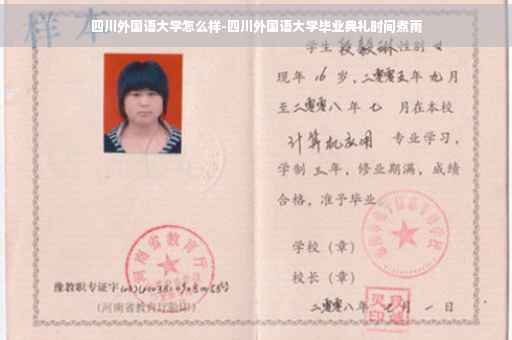 四川外国语大学怎么样-四川外国语大学毕业典礼时间煮雨
样本
学生 段毅琳 性别 女
现年 16 岁，二零零五年 九月
至二零零八年 七 月在本校
计算机应用 专业学习，
学制 三 年，修业期满，成绩
合格，准予毕业
学校（章）
校长（章）
二零零八年 月 一 日
河南省教育厅
豫教职专证字
（河南省教育厅验印）